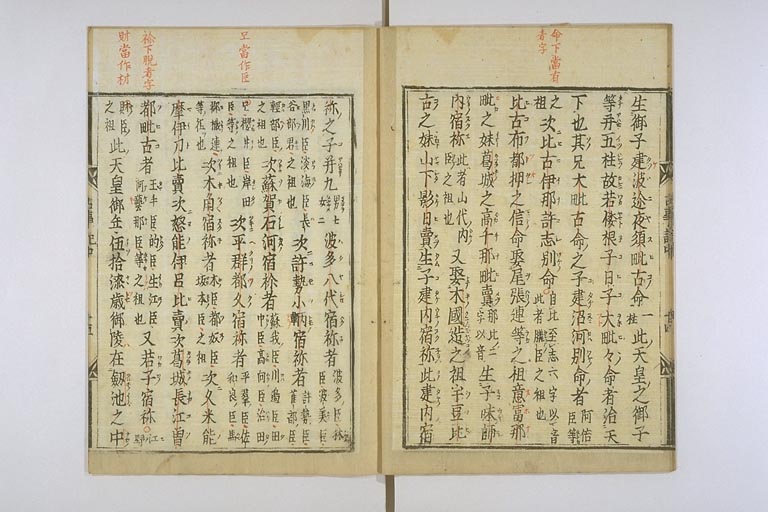 命下當有
者字
生御子建波迩夜須毗古命一柱此天皇之御子
等并五柱故若倭根子日子大毗々命者治天
下也其兄大毗古命之子建沼河別命者阿倍臣等
之祖次比古伊那許志別命自比至志六字以音此者膳臣之祖也
比古布都押之信命娶尾張連等之祖意富那
毗之妹葛城之高千那毗賣那毗二字以音生子味師
內宿祢此者山代內臣之祖也又娶木國造之祖宇豆比
古之妹山下影日賣生子建內宿祢此建內宿
祢之子并九男七女二波多八代宿祢者波多臣林臣波美臣
黒川臣淡海臣長谷部君之祖也次許勢小柄宿祢者許勢臣雀部臣
輕部臣之祖也次蘇賀石河宿祢者蘇我臣川邊臣田中臣高向臣治田
臣櫻井臣岸田臣等之祖也次平群都久宿祢者平群臣佐和良臣馬
御樴連等祖也次木角宿祢者木臣都奴臣坂本臣之祖次久米能
摩伊刀比賣次怒能伊呂比賣次葛城長江曽
都毗古者玉手臣的臣生江臣阿藝那臣等之祖也又若子宿祢江野
財臣之祖此天皇御年伍拾漆歳御陵在劔池之中
旦當作臣
祢下脫者字
財當作材